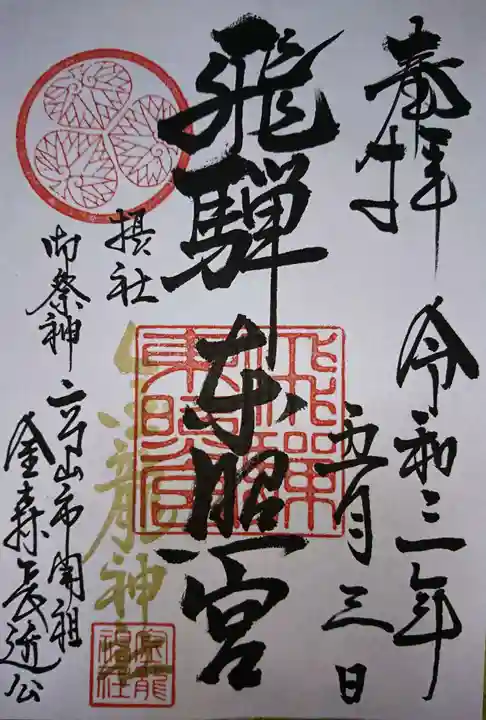 奉拝
令和三年
五月三日
飛騨東照宮
飛騨東照宮
摂社
龍神
御祭神
高山市開祖
金森長近公